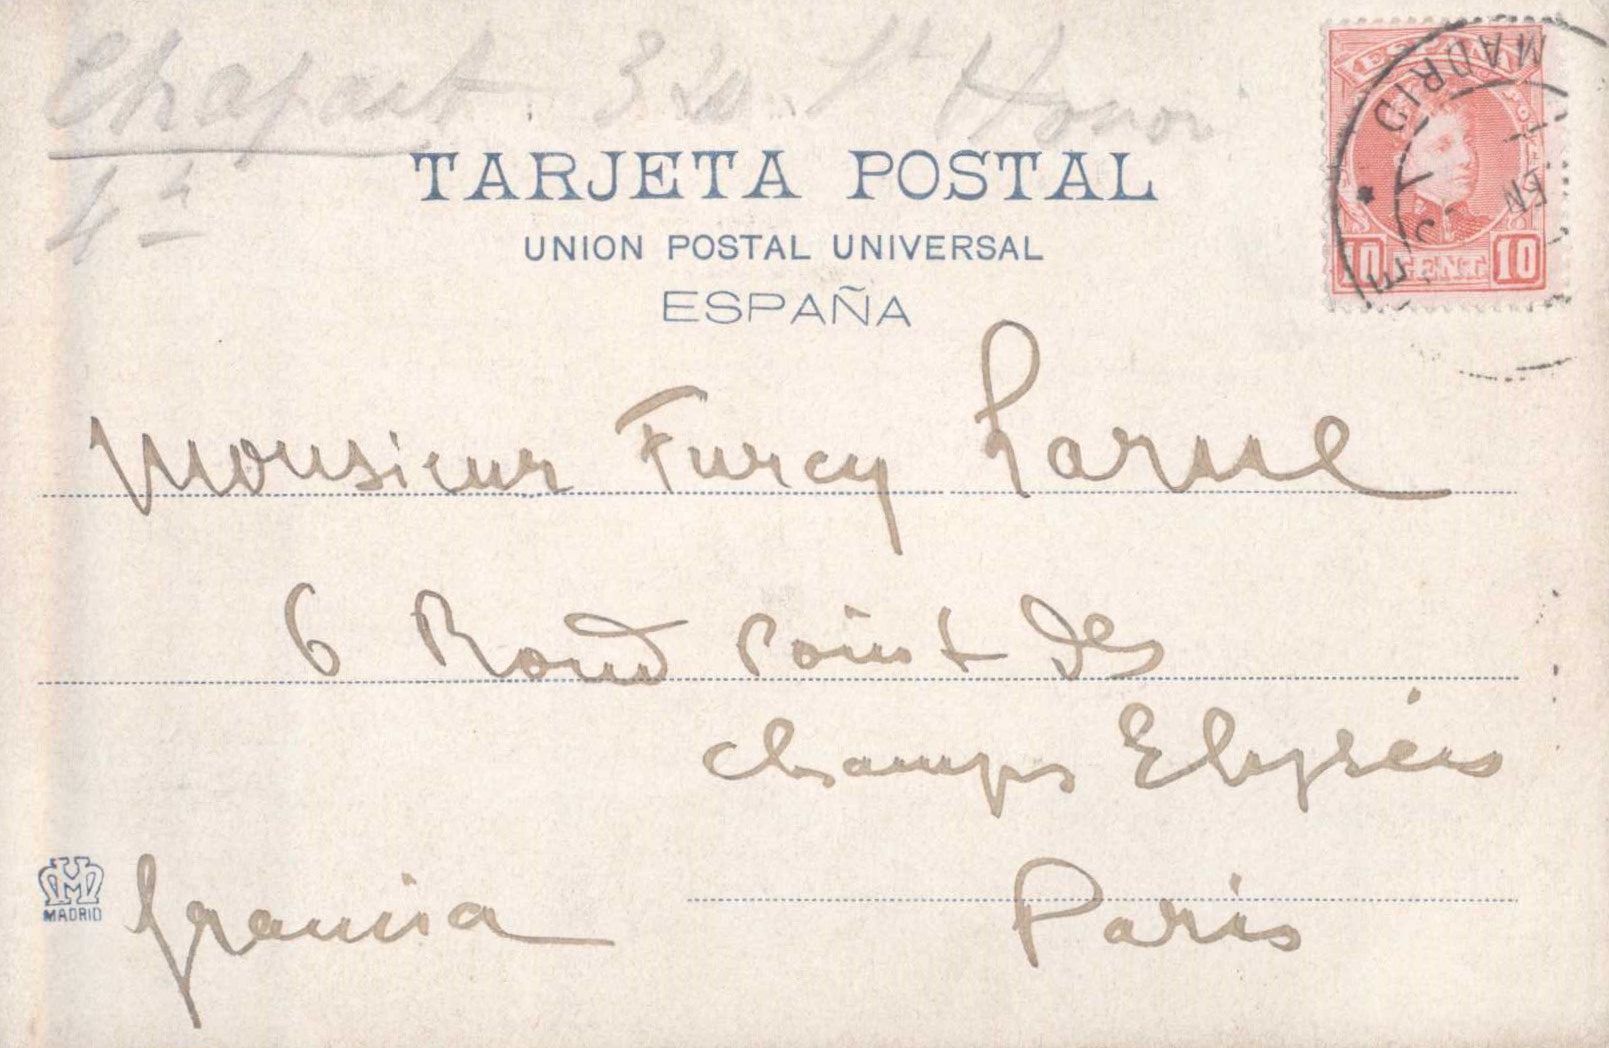 Chapart 320 St Honor
4 -
TARJETA POSTAL
UNION POSTAL UNIVERSAL
ESPAÑA
ESPAÑA
10 CENT 10
MADRID
EN
Monsieur Furcy Larue
6 Rond Point des
champs Elysées
Paris
francia
MADRID